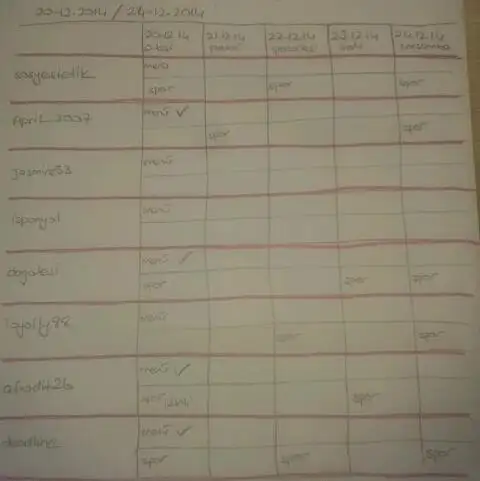 20.12.2014 / 24.12.2014
20.12.14 21.12.14 22.12.14 23.12.14 24.12.14
pazar pazartesi salı
sosyetedik menü
spor spor spor
April_2007 menü ✓
spor spor
menü
ispanyol menü
menü ✓
spor spor spor
menü
spor spor
afrodit26 menü ✓
spor spor
deadline menü ✓
spor spor spor